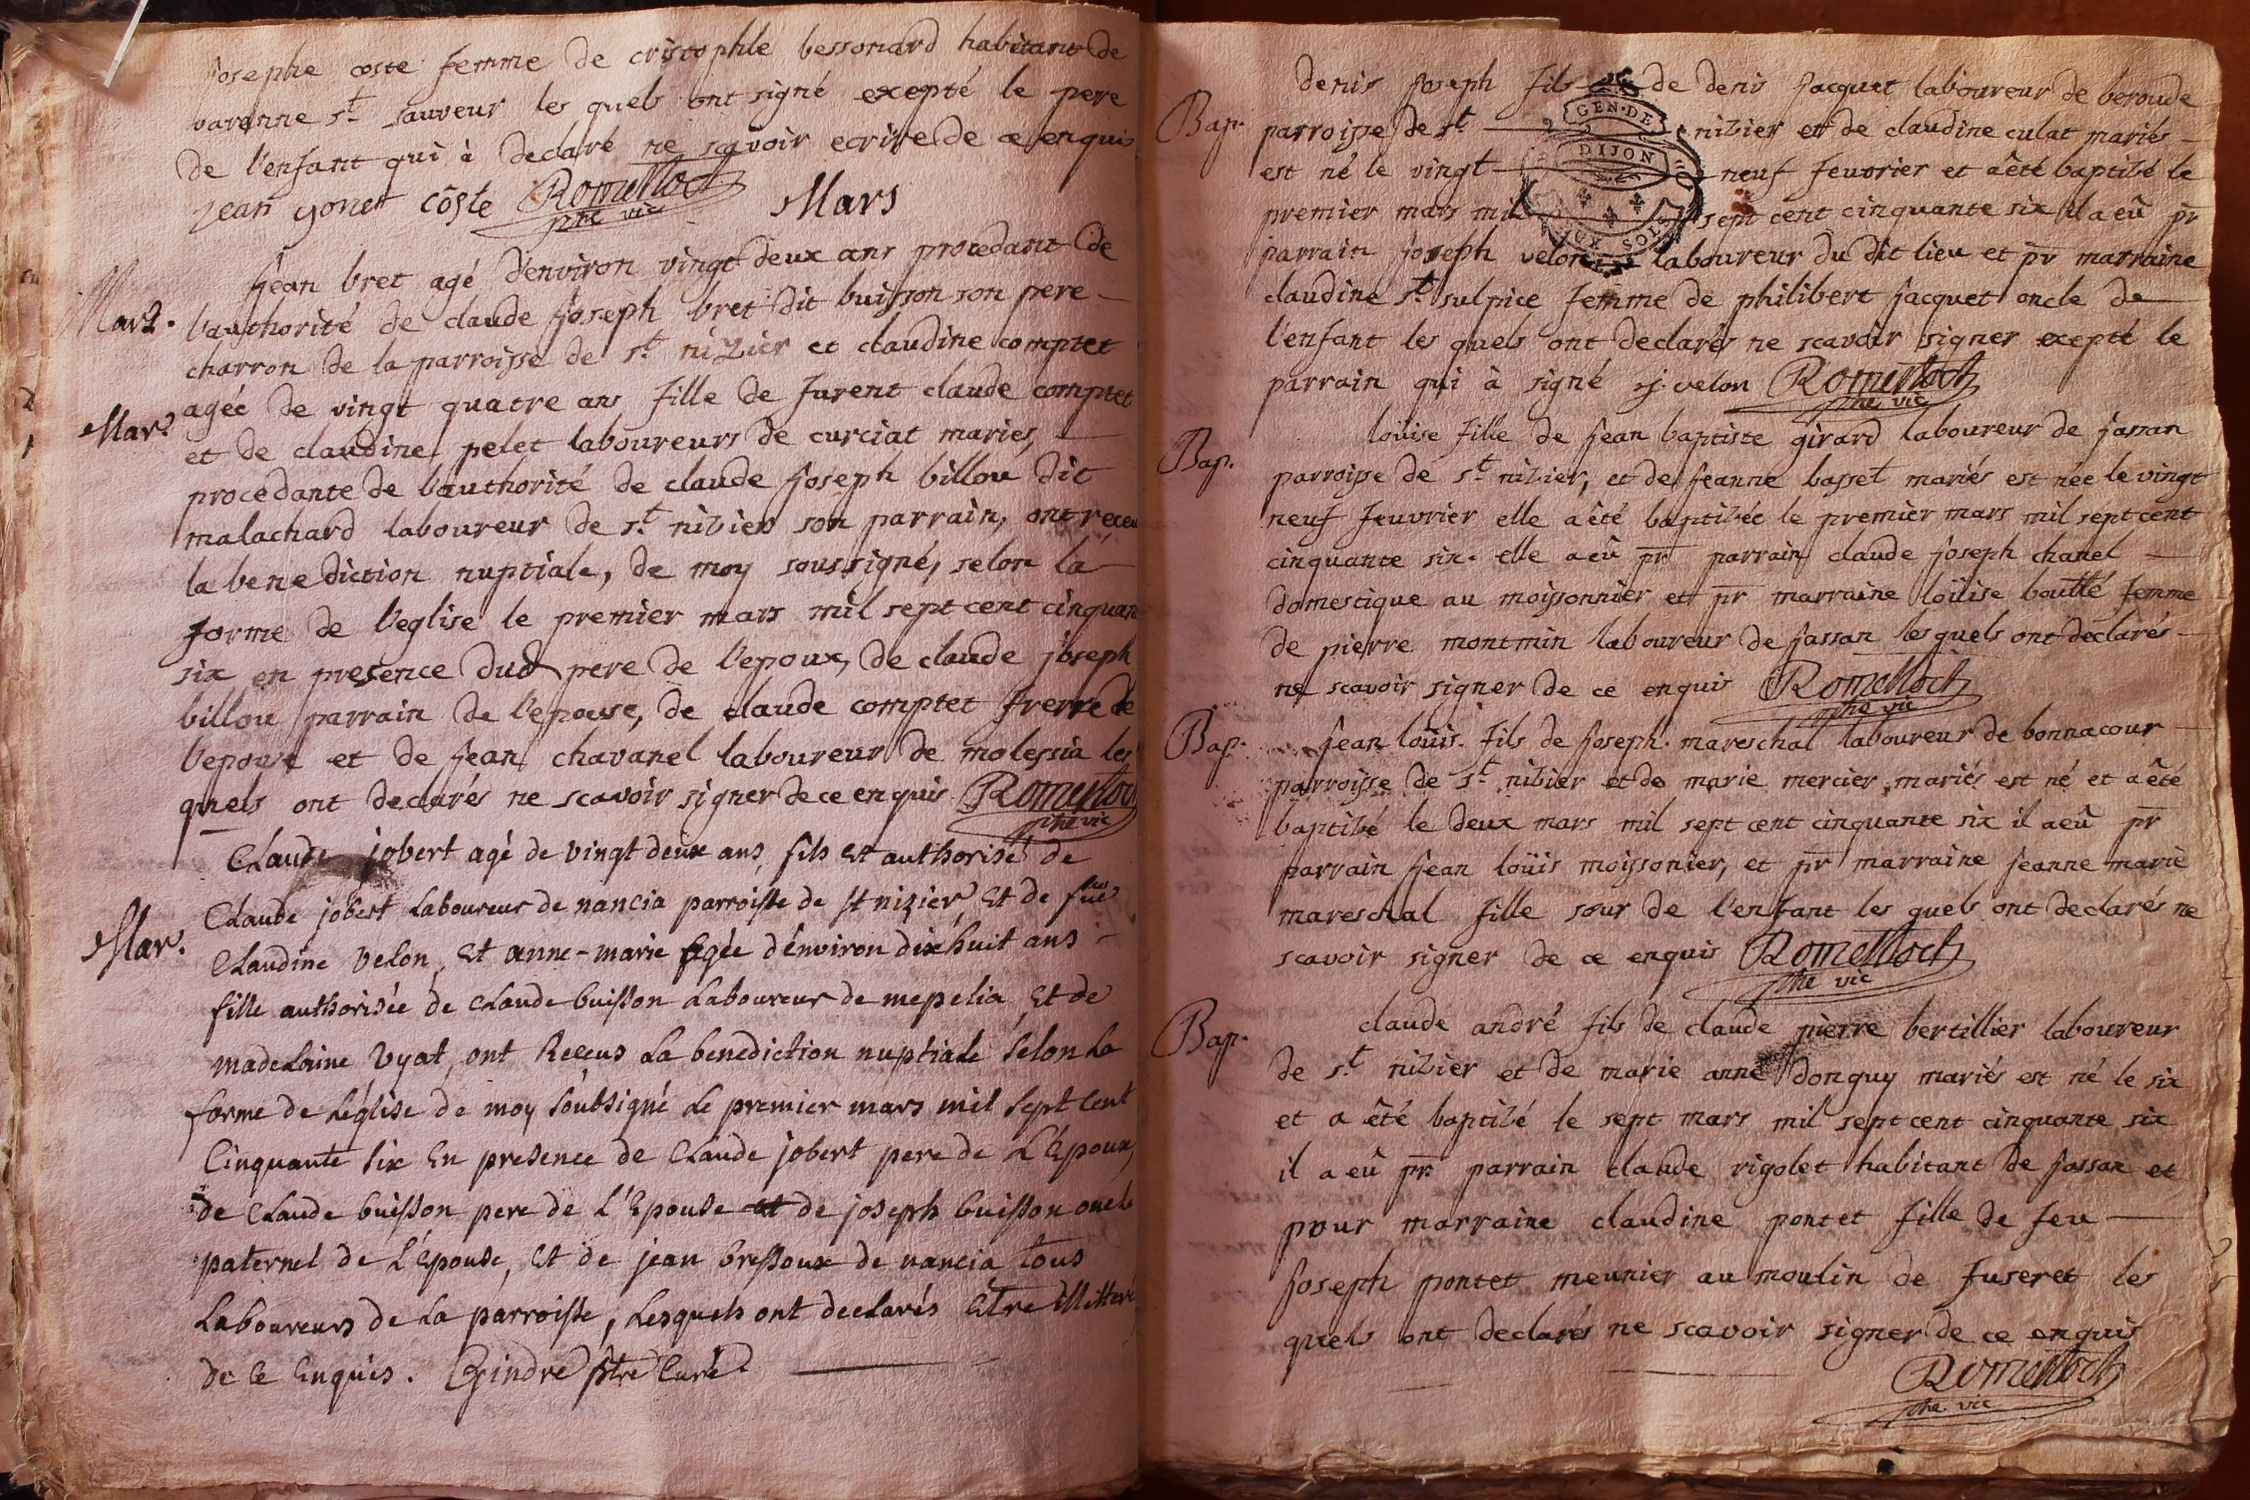 josephe coste femme de cristophle bessonard habitant de
varenne st sauveur les quels ont signé exepté le pere
de l'enfant qui à declaré ne scavoir ecrire de ce enquis
jean yonet côste Romettoch
ptre vic
Mars
Mar2.
jean bret agé d'environ vingt deux ans procedant de
l'authorité de claude joseph bret dit buisson son pere
charron de la parroisse de st nizier et claudine comptet
Mar?
agée de vingt quatre ans fille de furent claude comptet
et de claudine pelet laboureurs de curciat mariés,
procedante de l'authorité de claude joseph billou dit
malachard laboureur de st nizier son parrain, ont receu
la benediction nuptiale, de moy soussigné, selon la
forme de l'eglise le premier mars mil sept cent cinquan
six en presence dud pere de l'epoux, de claude joseph
billou parrain de l'epouse, de claude comptet frerre de
l'epouse et de jean chavanel laboureur de molessia les
quels ont declarés ne scavoir signer de ce enquis Romettoch
ptre vic
Claude jobert agé de vingt deux ans, fils et authorisé de
Claude jobert Laboureur de nancia parroisse de st nizier, Et de fue
Mar.
Claudine velon, Et anne-marie agée d'environ dix huit ans
fille authorisée de Claude buisson Laboureur de mepelia, Et de
madelaine vyat, ont Receus La benediction nuptiale selon La
forme de L'église de moy soubsigné Le premier mars mil sept cent
Cinquante six En presence de Claude jobert pere de L'Epoux,
de Claude buisson pere de L'Epouse et de joseph buisson oncle
paternel de L'Epouse, Et de jean bressoux de nancia tous
Laboureurs de La parroisse, Lesquels ont declarés Etre illitteré
de ce Enquis. Gindre ptre Curé.
denis joseph fils de denis jacquet laboureur de beroude
Bap.
parroisse de st nizier et de claudine culat mariés
est né le vingt neuf feuvrier et a été baptizé le
premier mars mil sept cent cinquante six il a eû pr
parrain joseph velon laboureur du dit lieu et pr marraine
claudine st sulpice femme de philibert jacquet oncle de
l'enfant les quels ont declarés ne scavoir signer exepté le
parrain qui à signé j. velon Romettoch
ptre vic
GEN·DE
DIJON
SOLS
loüise fille de jean baptiste girard laboureur de jassan
Bap.
parroisse de st nizier, et de jeanne basset mariés est née le vingt
neuf feuvrier elle a été baptizée le premier mars mil sept cent
cinquante six. elle a eû pr parrain claude joseph chanel
domestique au moissonnier et pr marraine loüise boutté femme
de pierre montmin laboureur de jassan les quels ont declarés
ne scavoir signer de ce enquis Romettoch
ptre vic
Bap.
jean loüis fils de joseph mareschal laboureur de bonnacour
parroisse de st nizier et de marie mercier mariés est né et a été
baptizé le deux mars mil sept cent cinquante six il a eû pr
parrain jean loüis moissonier, et pr marraine jeanne marie
mareschal fille sour de l'enfant les quels ont declarés ne
scavoir signer de ce enquis Romettoch
ptre vic
Bap.
claude andré fils de claude pierre bertillier laboureur
de st nizier et de marie anne donguy mariés est né le six
et a été baptizé le sept mars mil sept cent cinquante six
il a eû pr parrain claude rigolet habitant de jassan et
pour marraine claudine pontet fille de feu
joseph pontet meunier au moulin de fuseret les
quels ont declarés ne scavoir signer de ce enquis
Romettoch
ptre vic